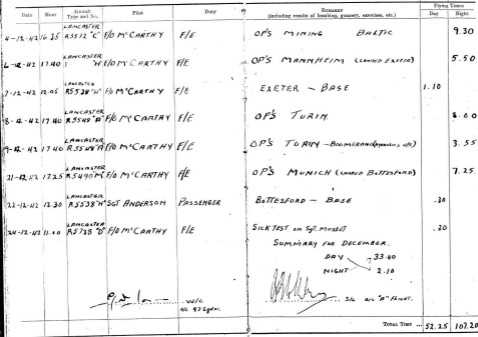 Date Hour Aircraft Type and No. Pilot Duty REMARKS (including results of bombing, gunnery, exercises, etc.) Flying Times Day Night
4-12-42 16.35 LANCASTER R5512 "C" F/O McCARTHY F/E OP'S MINING BALTIC 9.30
6-12-42 17.40 LANCASTER "H" F/O McCARTHY F/E OP'S MANNHEIM (LANDED EXETER) 5.50
7-12-42 12.05 LANCASTER R5538 "H" F/O McCARTHY F/E EXETER - BASE 1.10
8-12-42 17.40 LANCASTER F/O McCARTHY F/E OP'S TURIN
9-12-42 17.40 LANCASTER F/O McCARTHY F/E OP'S TURIN - BOOMERANG 3.55
21-12-42 17.25 LANCASTER "M" F/O McCARTHY F/E OP'S MUNICH (LANDED BOTTESFORD) 7.25
22-12-42 12.30 LANCASTER R5538 "H" SGT ANDERSON PASSENGER BOTTESFORD - BASE .30
24-12-42 11.00 LANCASTER "D" F/O McCARTHY F/E SICK TEST ON Sgt. .20
SUMMARY FOR DECEMBER.
DAY 33.40
NIGHT 2.10
W/C
O/C 97 Sqdn.
S/L O/C "A" FLIGHT.
TOTAL TIME ... 52.25 107.20